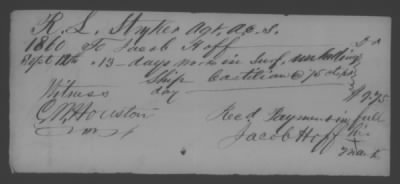 R. L. Stryker Agt. A.C.S.
1860 To Jacob Hoff Dr
Sept 12th " 13 days work in Surf, unloading
Ship Castilian @ 75 cts per
day $9.75
Witness
C. M. Houston Recd Payment in full
Jacob Hoff his
X
mark